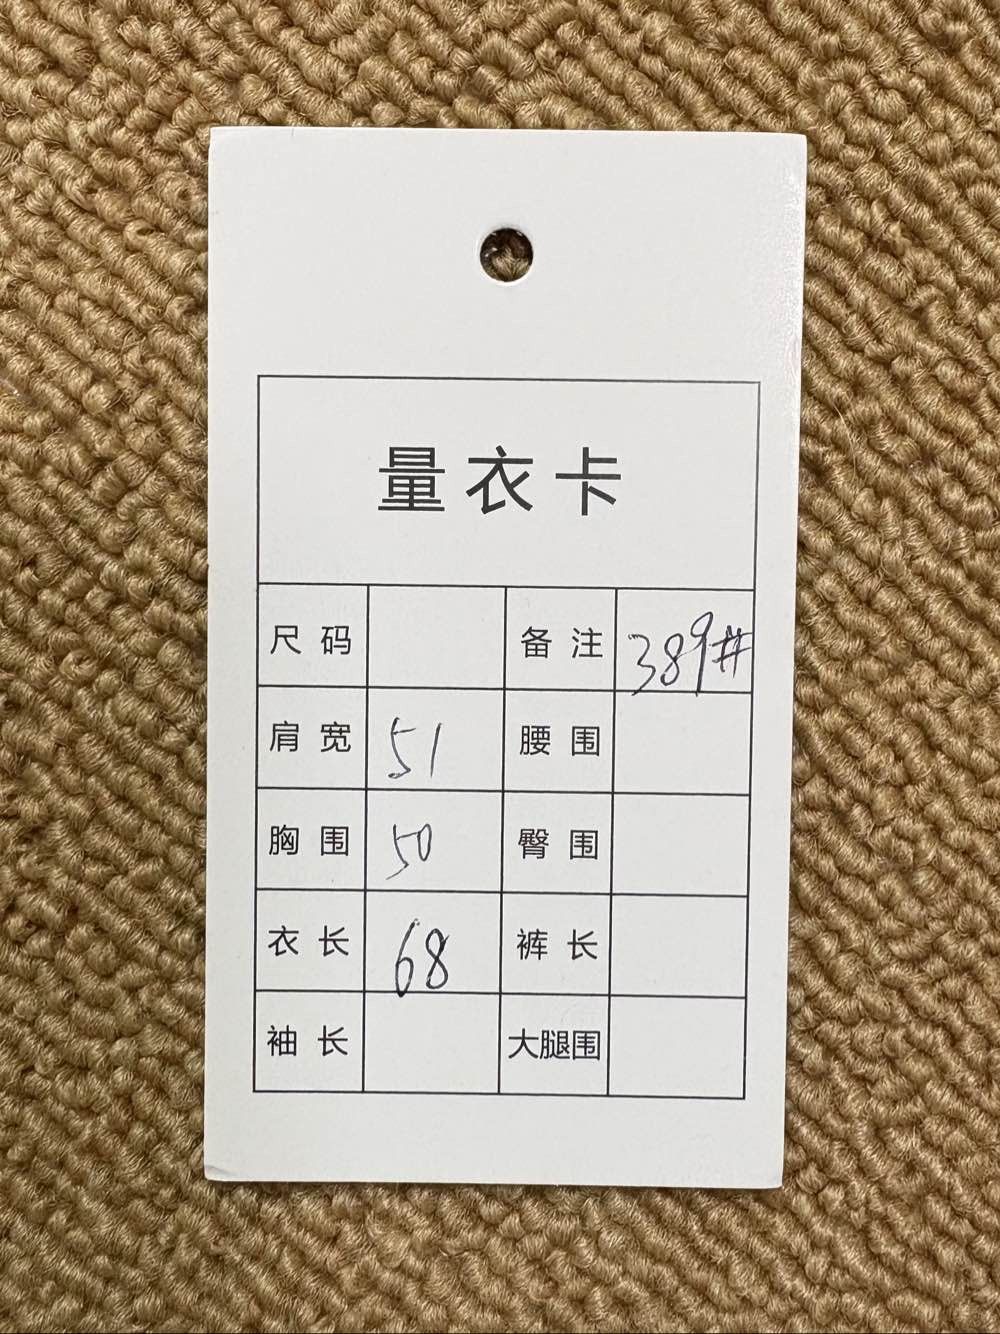 量衣卡
尺码 备注 389#
肩宽 51 腰围
胸围 50 臀围
衣长 68 裤长
袖长 大腿围